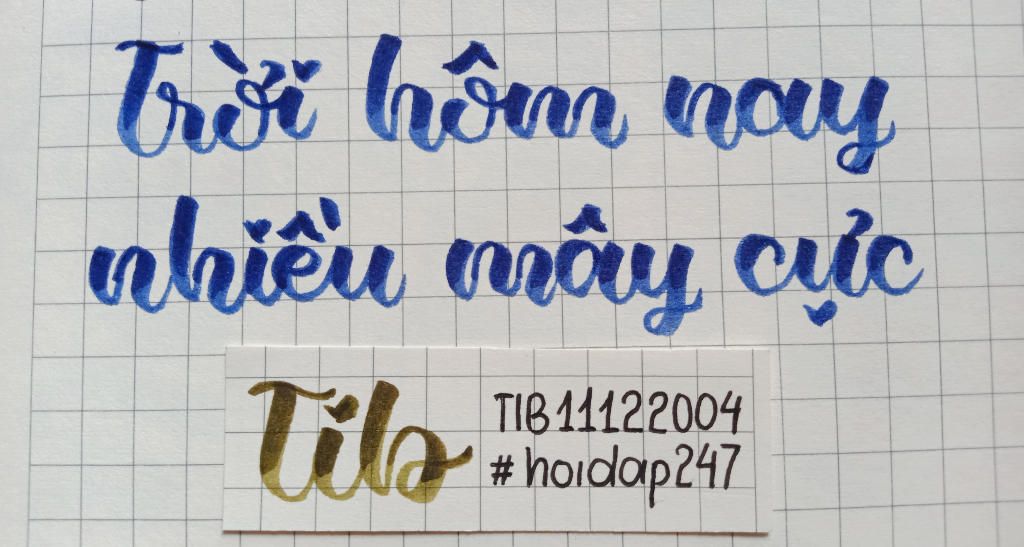 Trời hôm nay
nhiều mây cực
Tib
TIB11122004
#hoidap247